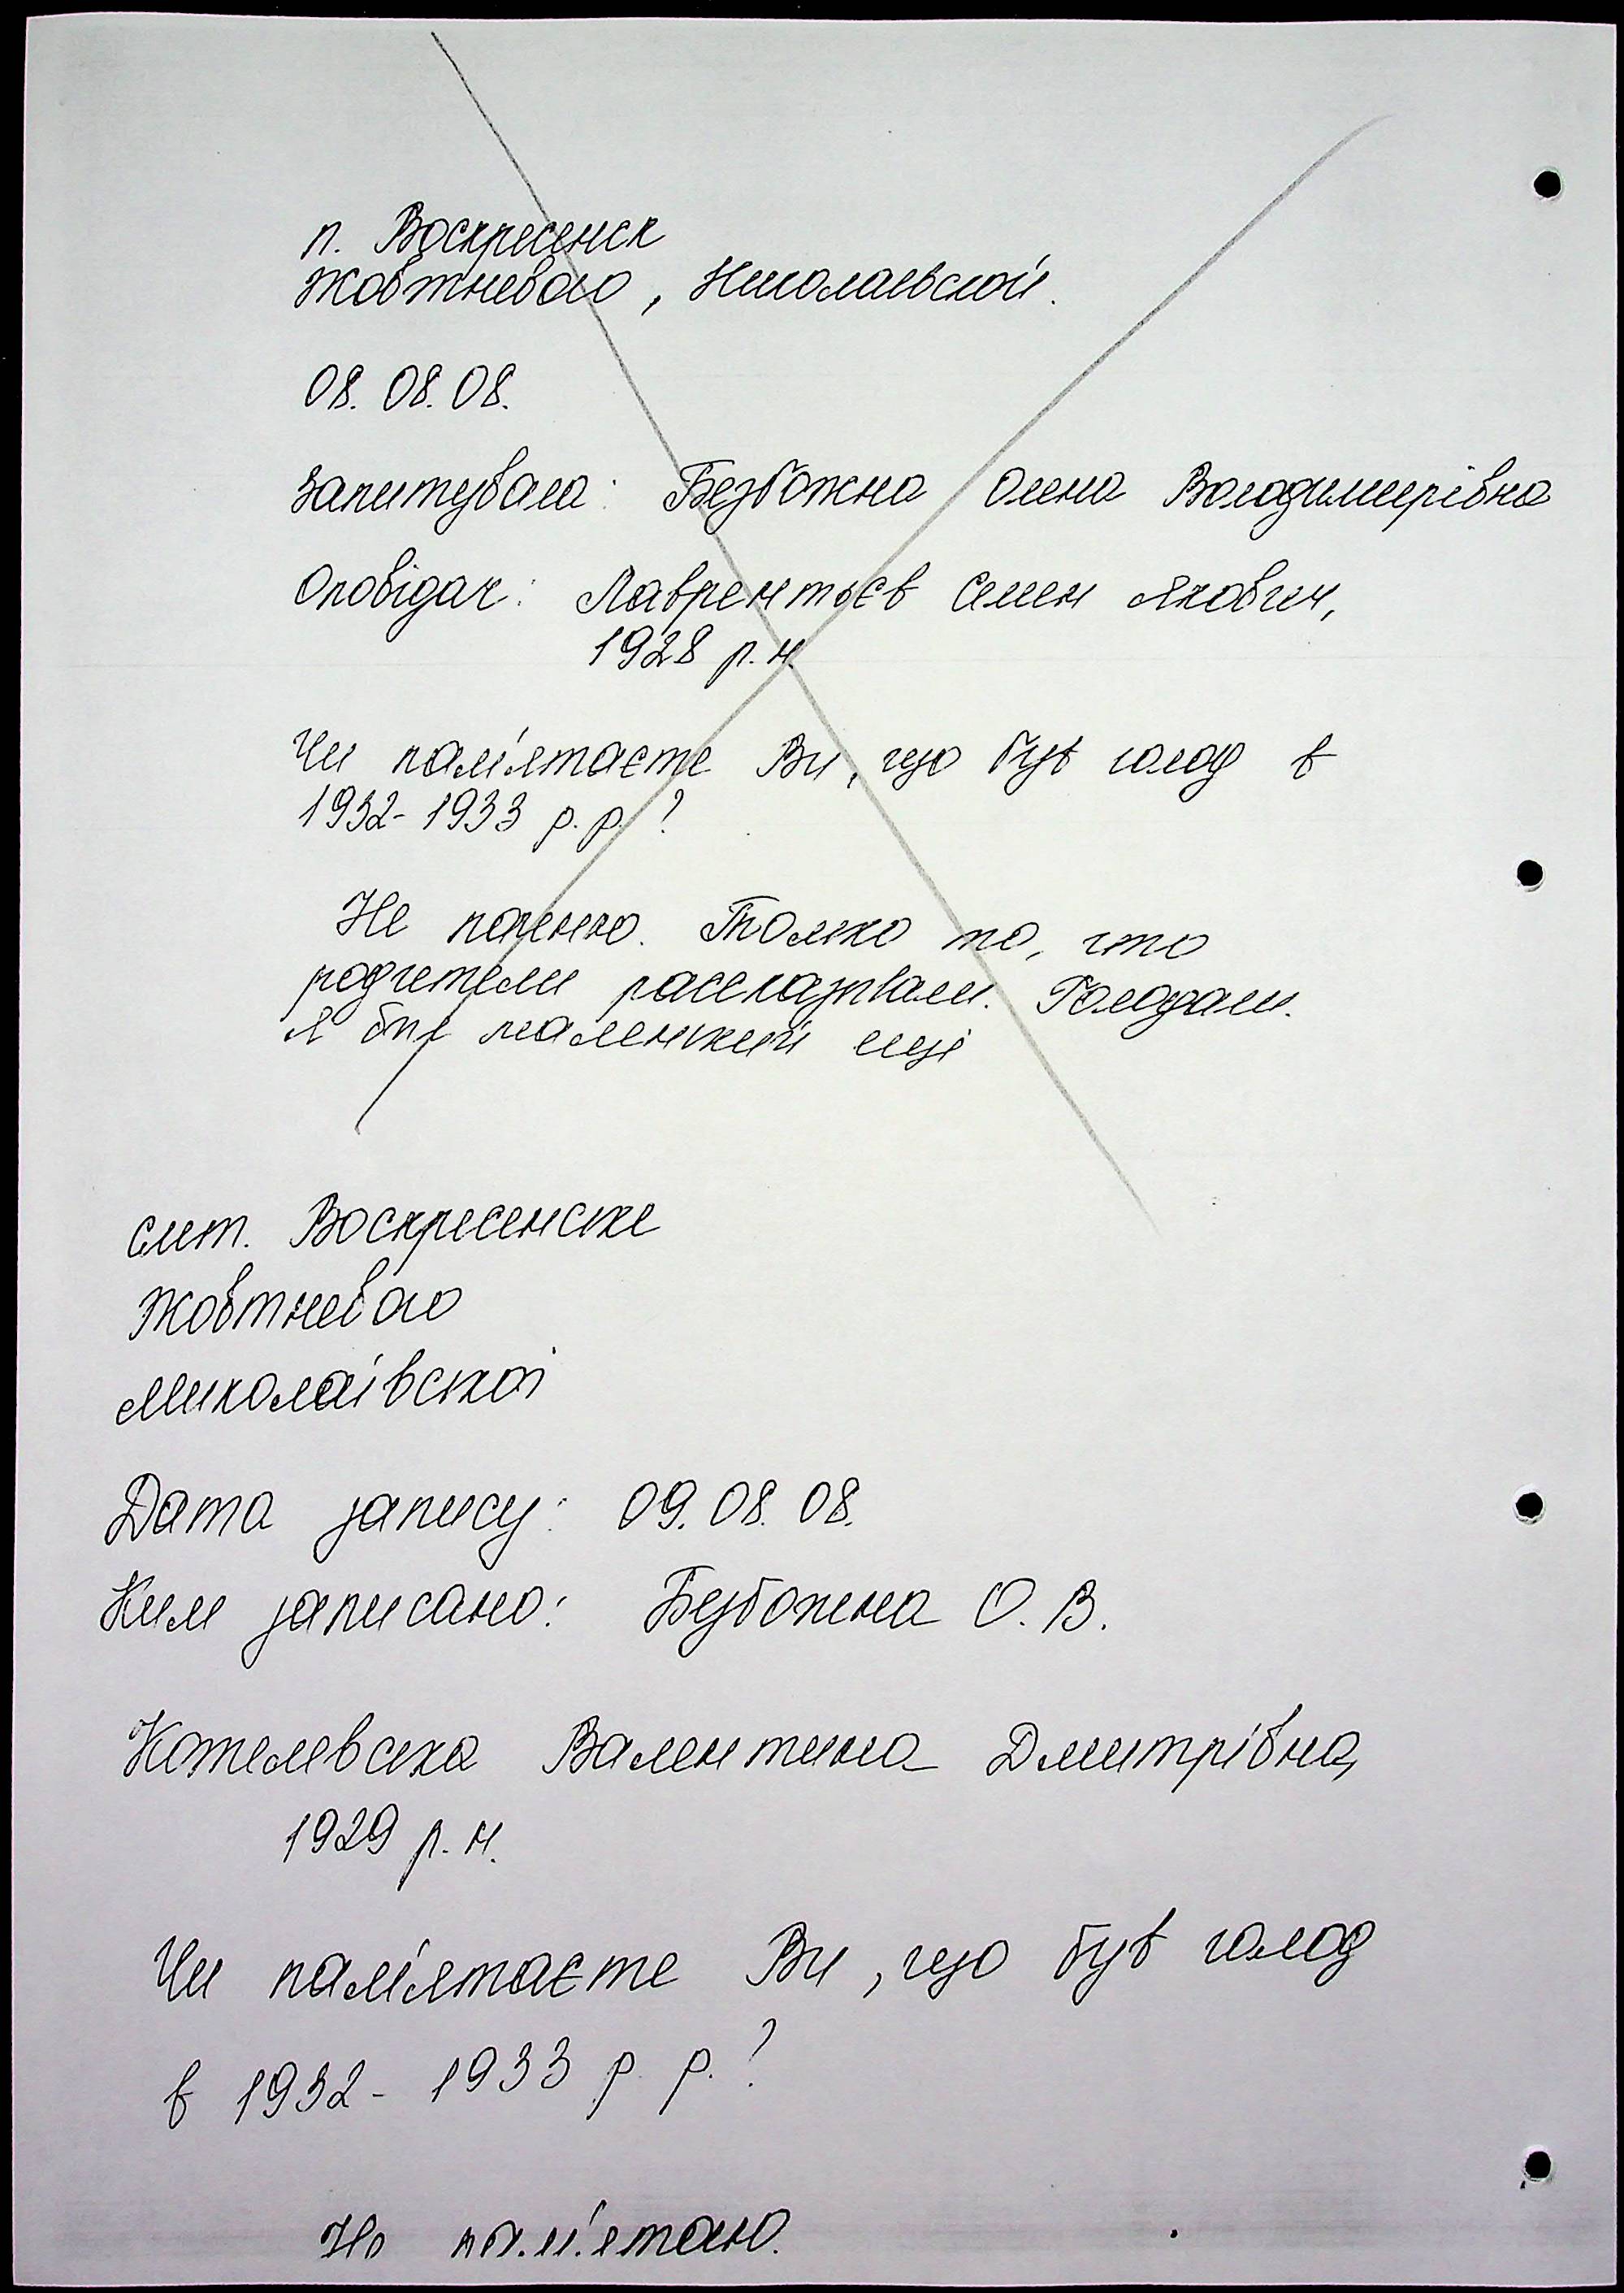 п. Воскресенск
Жовтневого, Николаевской.
08.08.08.
Запитувала: Безбожна Олена Володимирівна
Оповідач: Лаврентьєв Семен Якович,
1928 р.н.
Чи пам'ятаєте Ви, що був голод в
1932-1933 р.р.?
Не помню. Только то, что
родители рассказывали. Голодали.
Я був маленький ещё
смт. Воскресенске
Жовтневого
Миколаївської
Дата запису: 09.08.08.
Ким записано: Безбожна О.В.
Котелевська Валентина Дмитрівна,
1929 р.н.
Чи пам'ятаєте Ви, що був голод
в 1932-1933 р р.?
Не пам'ятаю.